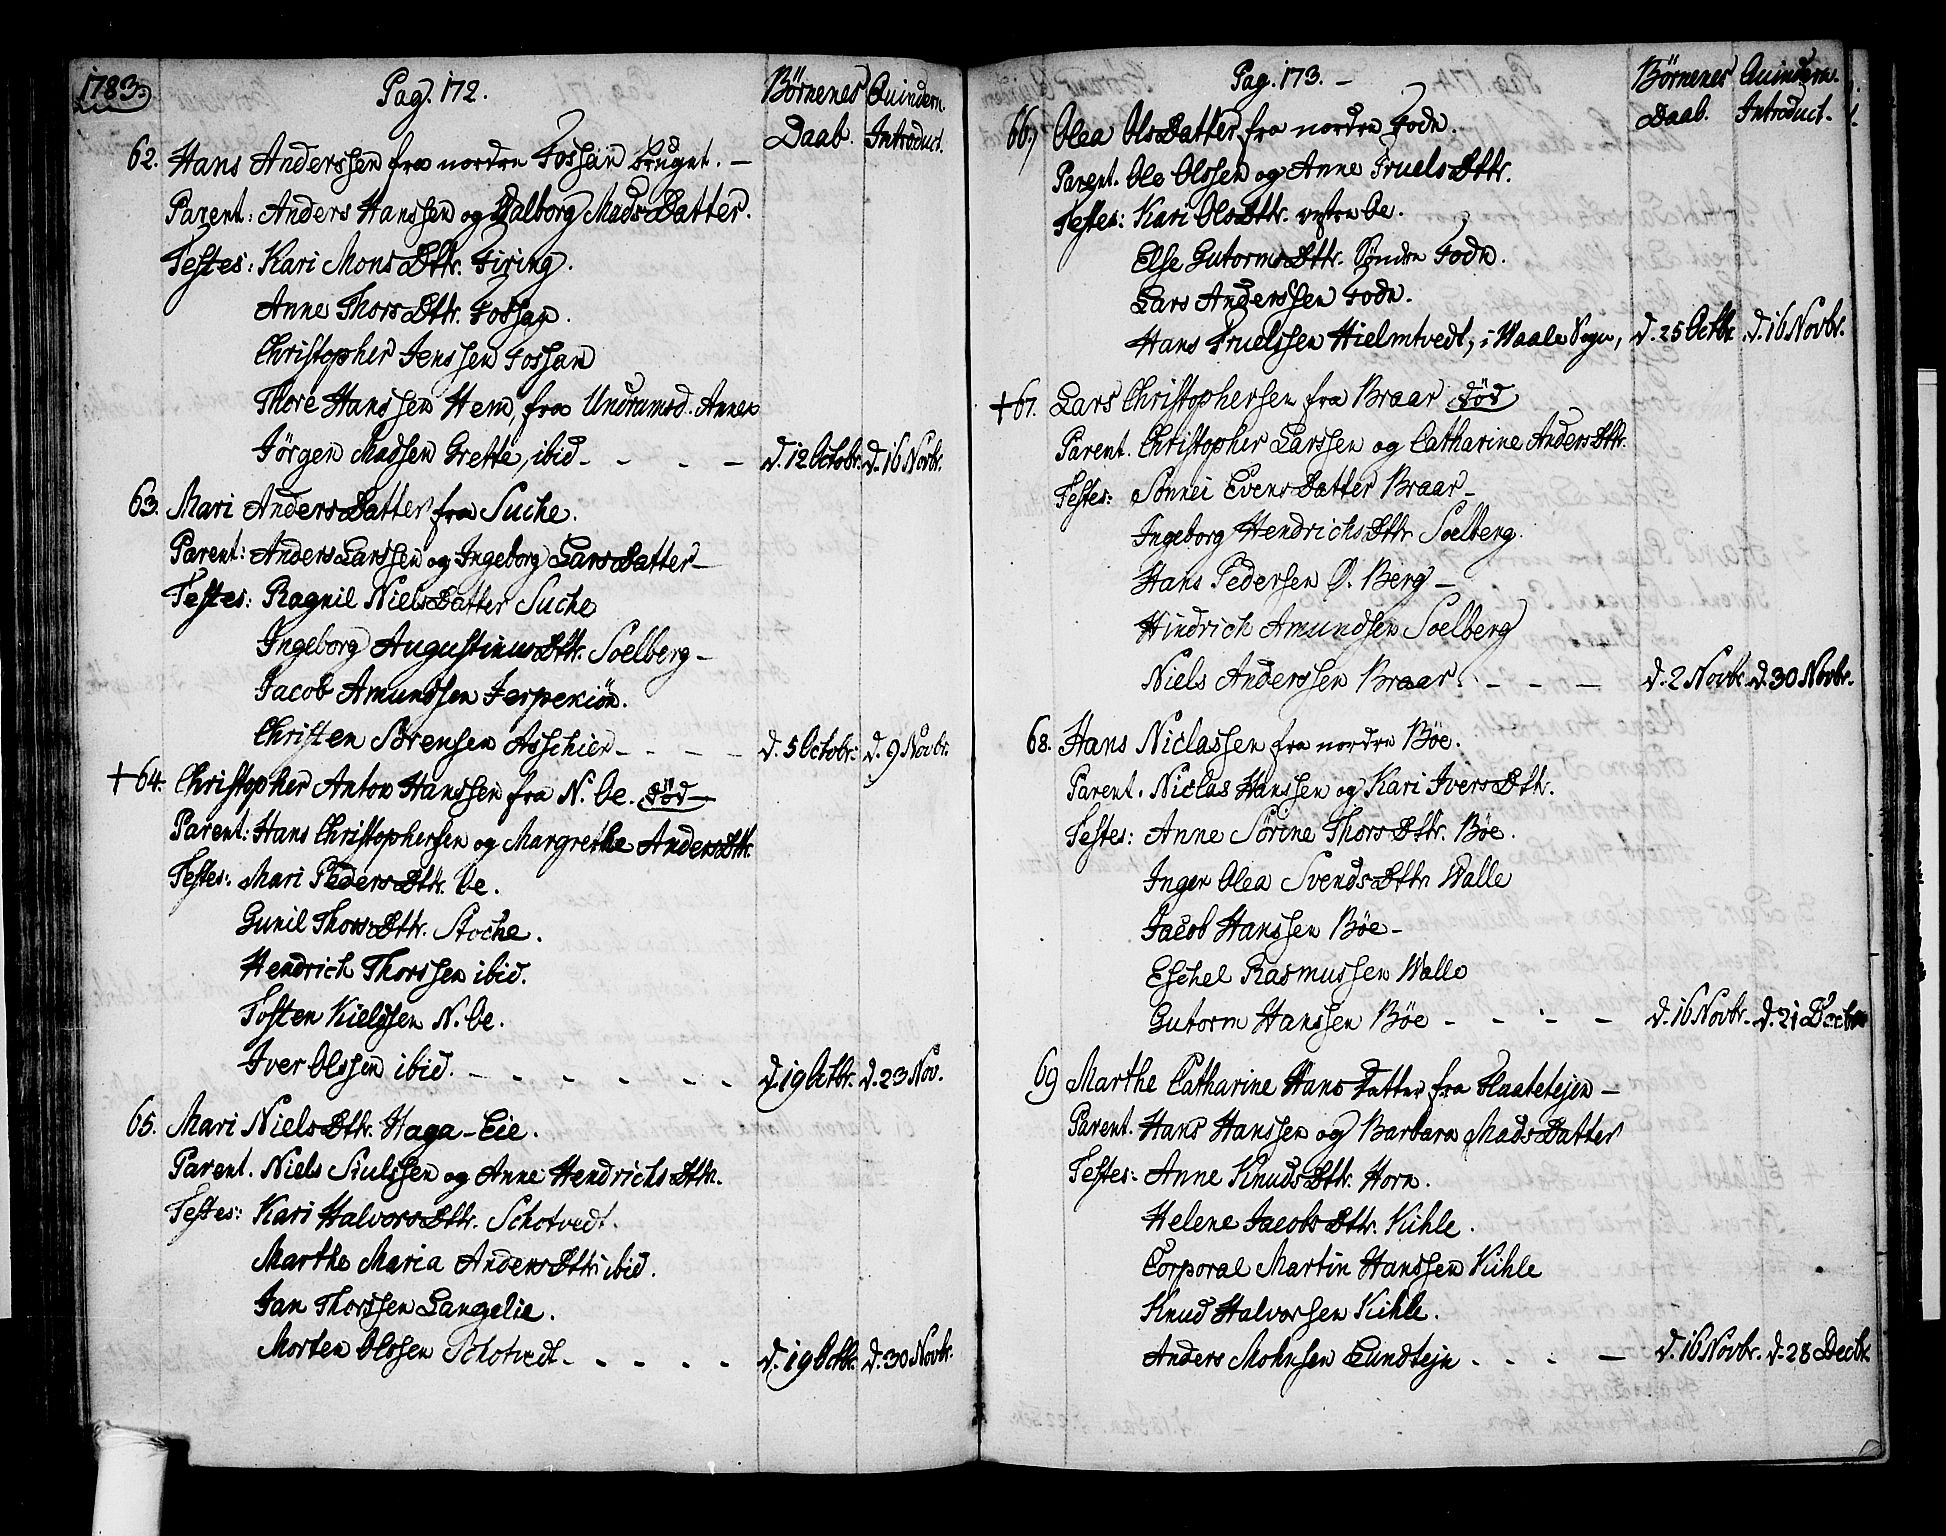 1783.
Pag. 172.
Börnenes Daab.
Quindern. Introduct.
62. Hans Anderssen fra nordre Fossan bruget. –
Parent: Anders Hanssen og Valborg MadsDatter.
Testes: Kari MonsDttr. Firing.
Anne ThorsDttr. Fossan.
Christopher Jenssen Fossan
Thore Hanssen Hem, fra Undrumsd. Annex
Jörgen Madsen Grette, ibid - - - – d. 12 Octobr. d. 16 Novbr.
63. Mari AndersDatter fra Suche.
Parent: Anders Larssen og Ingeborg LarsDatter –
Testes: Ragnil NielsDatter Suche
Ingeborg AugustinusDttr. Soelberg –
Jacob Amundssen Jerpekiön.
Christen Sörensen Asschier - - - – d. 5 Octobr: d. 9 Novbr.
+ 64. Christopher Anton Hanssen fra N. Oe. död –
Parent: Hans Christophersen og Margrethe AndersDttr.
Testes: Mari PedersDttr. Oe.
Gunil ThorsDttr. Stoche.
Hendrich Thorssen ibid.
Tosten Kieldsen N. Oe.
Iver Olssen ibid. – - - - - - - d. 19 Octbr. d. 23 Nov.
65. Mari NielsDttr. Haga-Eie.
Parent. Niels Siulssen og Anne HendrichsDttr.
Testes: Kari HalvorsDttr. Schotvedt.
Marthe Maria AndersDttr ibid.
Jan Thorssen Langelie.
Morten Olssen Schotvedt - - - - - d. 19 Octbr. d. 30 Novbr.
Pag. 173. –
Börnenes Daab.
Quindern. Introduct.
66. Olea OlsDatter fra nordre Fodn.
Parent. Ole Olssen og Anne TruelsDttr.
Testes: Kari OlsDttr. vestre Oe.
Else GutormsDttr. Söndre Fodn.
Lars Anderssen Fodn.
Hans Truelssen Hielmtvedt, i Waale Sogn, d. 25 Octbr. d. 16 Novbr.
+ 67. Lars Christophersen fra Braar död
Parent. Christopher Larssen og Catharine AndersDttr.
Testes: Sönnei EvensDatter Braar –
Ingeborg HendrichsDttr Soelberg.
Hans Pedersen Ö. Berg –
Hindrich Amundsen Soelberg
Niels Anderssen Braar. - - – d. 2 Novbr. d. 30 Novbr.
68. Hans Niclassen fra nordre Böe.
Parent. Niclas Hanssen og Kari IversDtr.
Testes: Anne Sörine ThorsDttr. Böe.
Inger Olea SvendsDttr Walle
Jacob Hanssen Böe –
Eschel Rasmussen Walle
Gutorm Hanssen Böe - - - – d. 16 Novbr. d. 21 Decbr
69 Marthe Catharine HansDatter fra Flaatetejen –
Parent. Hans Hanssen og Barbara MadsDatter
Testes: Anne KnudsDttr. Horn.
Helene JacobsDttr. Kihle.
Corporal Martin Hanssen Kihle
Knud Halvorsen Kihle.
Anders Mohnsen Lundtejn - - - – d. 16 Novbr. d. 28 Decbr.